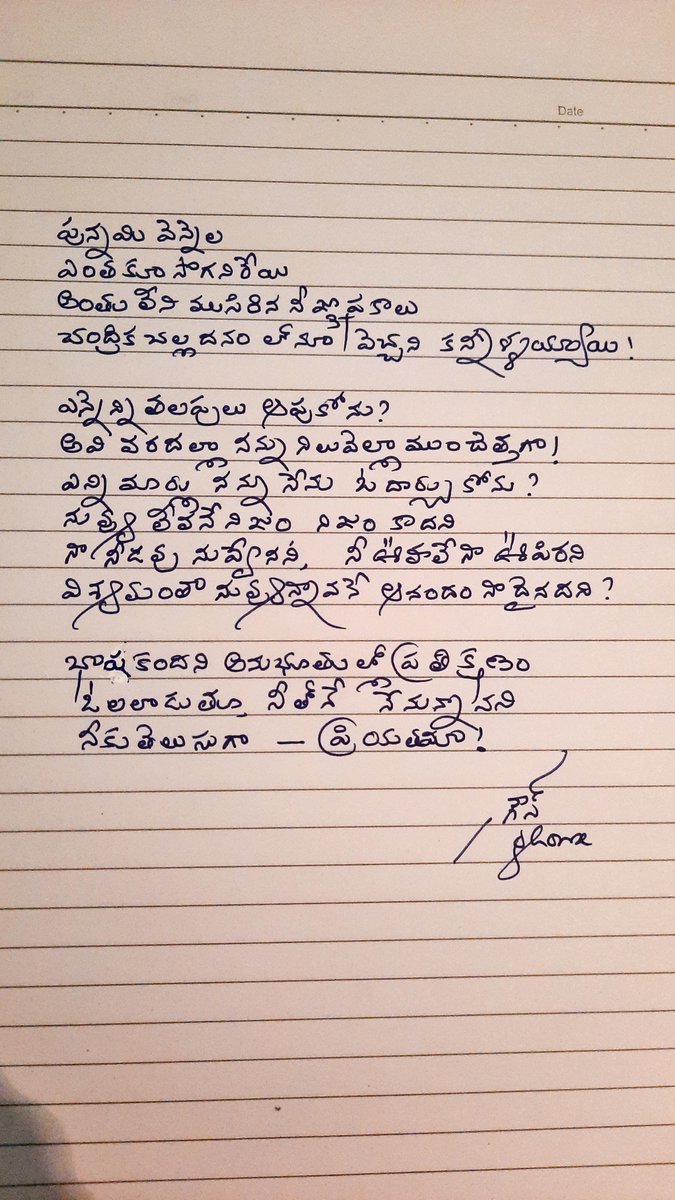 Date
పున్నమి వెన్నెల
ఎంతకూ సాగనిరేయి
అంతు లేని ముసిరిన నీ జ్ఞాపకాలు
చంద్రిక చల్లదనం లోనూ వెచ్చని కన్నీళ్ళయ్యాయి!
ఎన్నెన్ని తలపులు ఆపుకోను?
అవి వరదల్లా నన్ను నిలువెల్లా ముంచెత్తగా!
ఎన్ని మారు నన్ను నేను ఓదార్చుకోను?
నువ్వు లేవనే నిజం నిజం కాదని
నా నీడవు నువ్వేనని, నీ ఊహలే నా ఊపిరని
విశ్వమంతా నువ్వున్నావనే ఆనందం నాదైనదని?
భాషకందని అనుభూతులలో ప్రతి క్షణం
ఓలలాడుతూ నీతోనే నేనున్నానని
నీకు తెలుసుగా — ప్రియతమా!